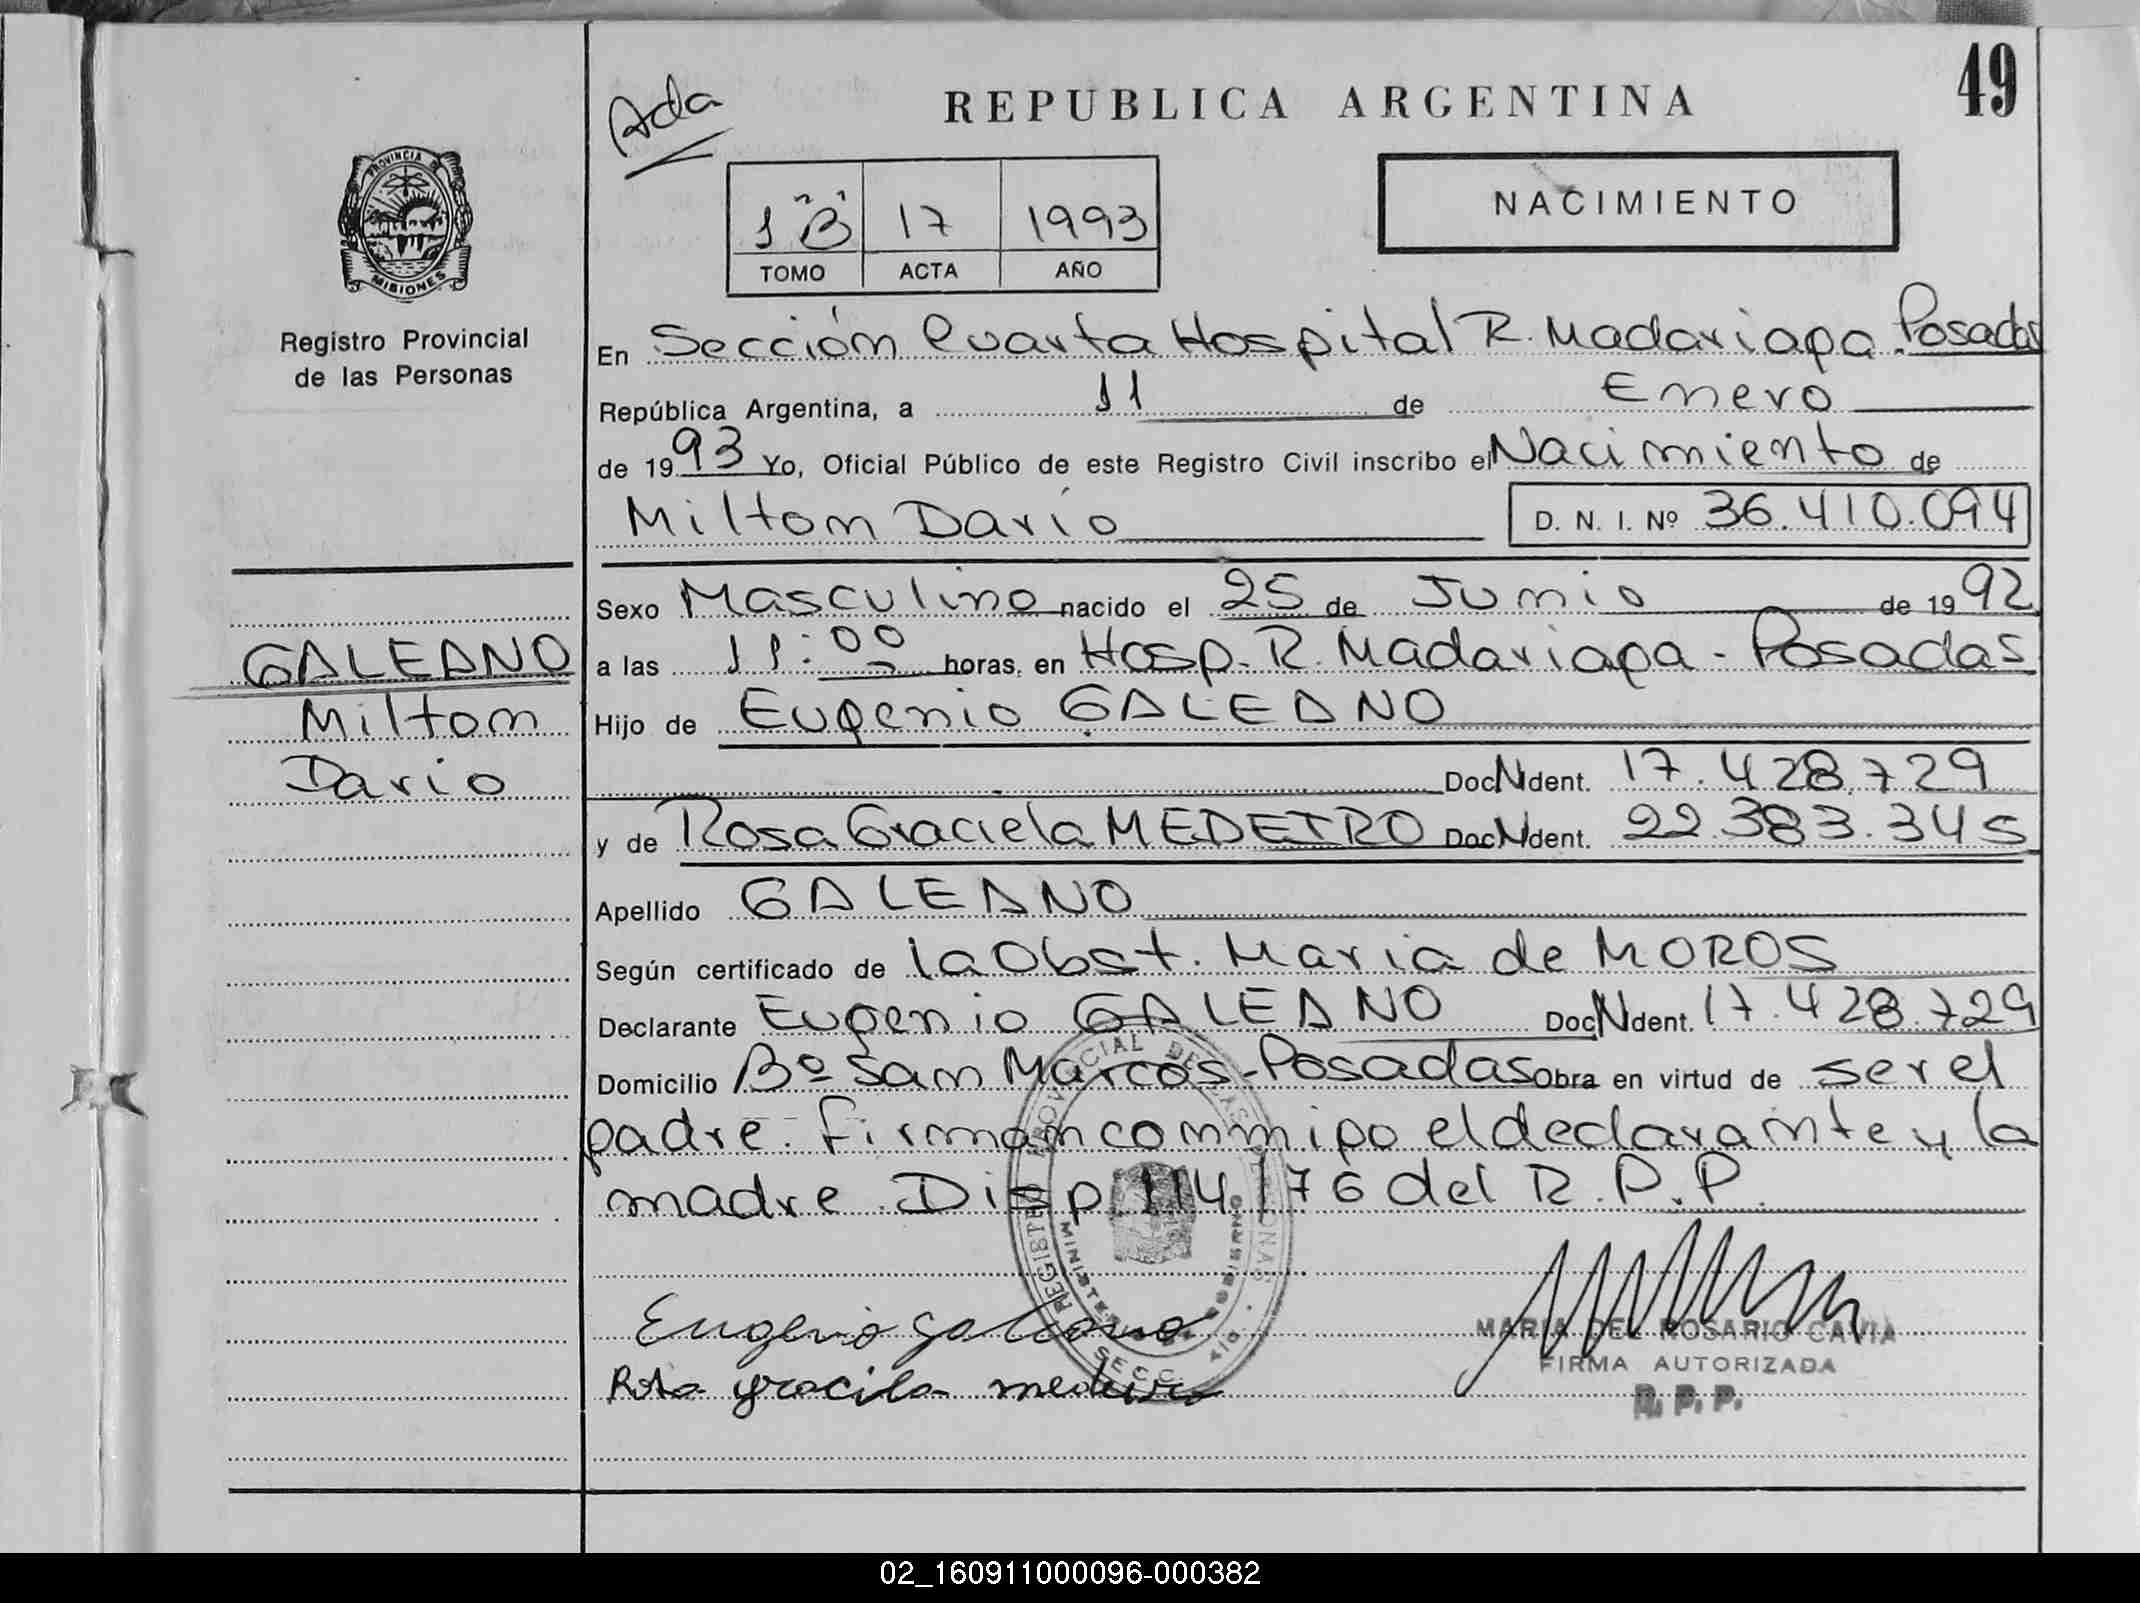 49
Ada
REPUBLICA ARGENTINA
NACIMIENTO
1 "B" 17 1993
TOMO ACTA AÑO
PROVINCIA DE MISIONES
Registro Provincial
de las Personas
En Sección Cuarta Hospital R. Madariaga. Posadas
República Argentina, a 11 de Enero
de 1993 Yo, Oficial Público de este Registro Civil inscribo el Nacimiento de
Milton Darío D. N. I. Nº 36.410.094
Sexo Masculino nacido el 25 de Junio de 1992
a las 11:00 horas, en Hosp. R. Madariaga - Posadas
Hijo de Eugenio GALEANO
Doc N Ident. 17.428.729
y de Rosa Graciela MEDEIRO Doc N Ident. 22.383.345
Apellido GALEANO
Según certificado de la Obst. Maria de MOROS
Declarante Eugenio GALEANO Doc N Ident. 17.428.729
Domicilio Bº San Marcos - Posadas Obra en virtud de ser el
padre. Firman conmigo el declarante y la
madre. Disp. 114/76 del R.P.P.
GALEANO
Milton
Dario
Eugenio Galeano
Rosa graciela medeiro
REGISTRO PROVINCIAL DE LAS PERSONAS
MINISTERIO DE GOBIERNO
SECC. 4ta.
MARIA DEL ROSARIO CAVIA
FIRMA AUTORIZADA
R. P. P.
02_160911000096-000382